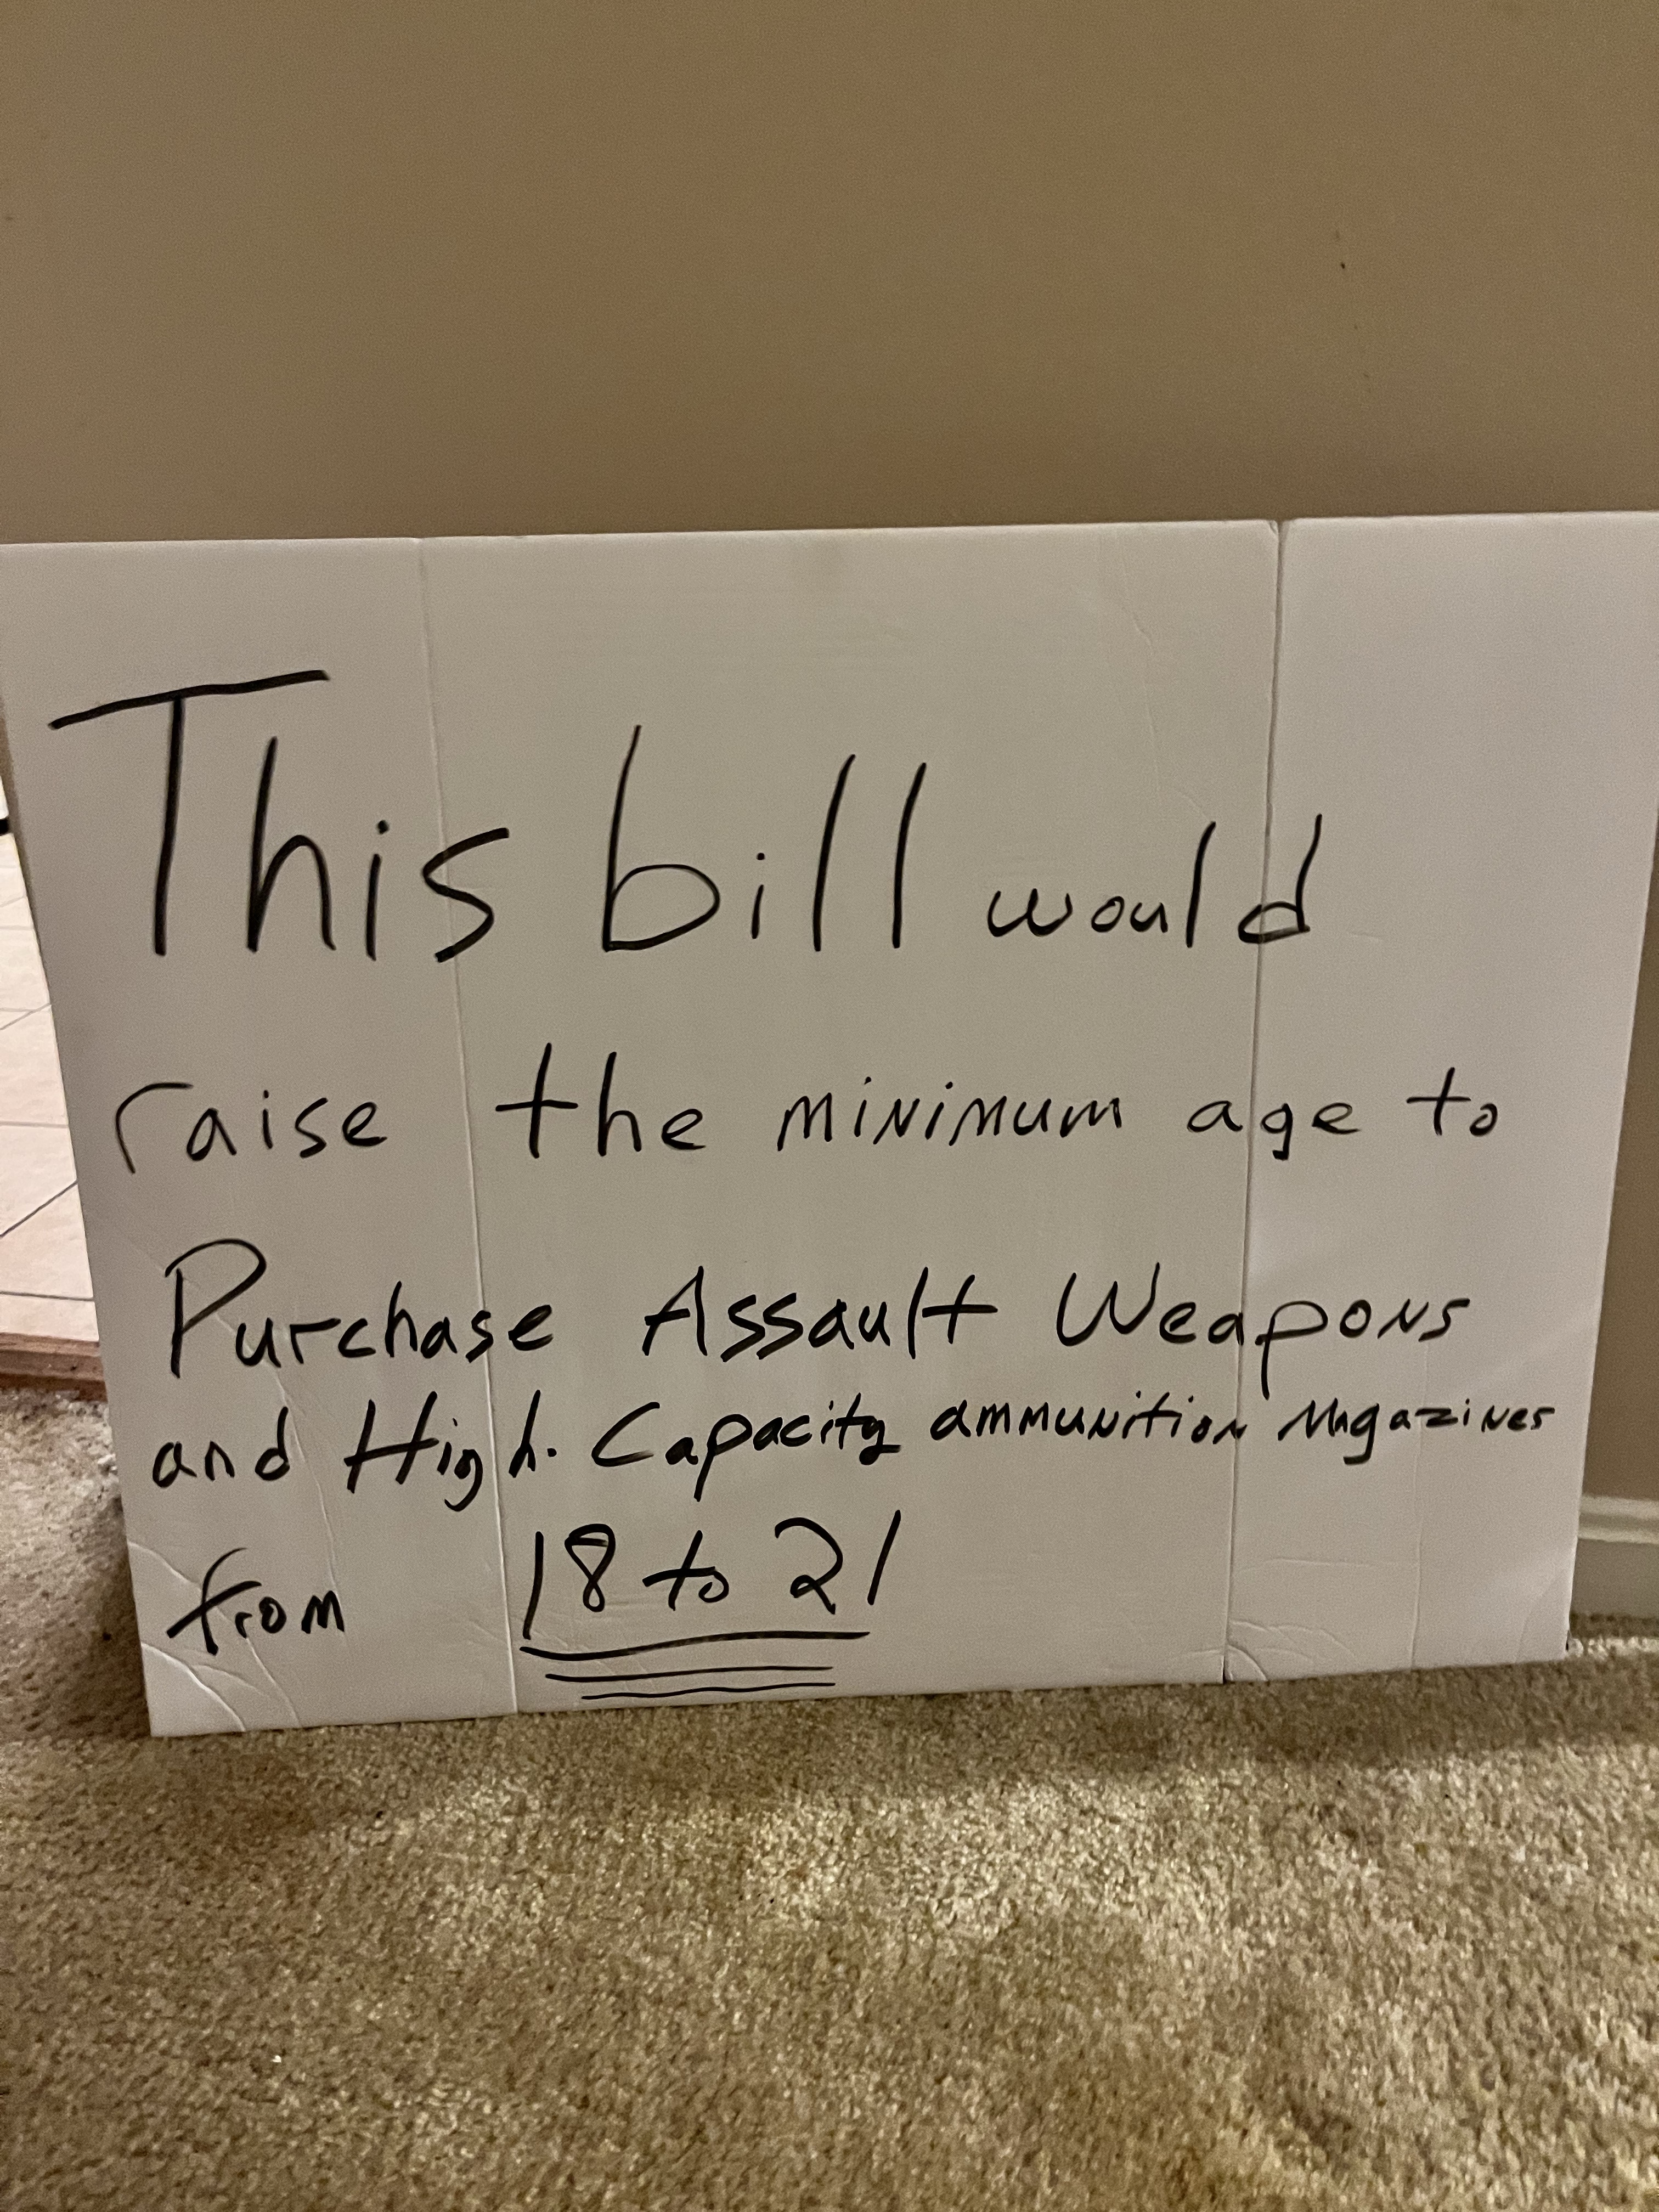 This bill would
raise the minimum age to
Purchase Assault Weapons
and High. Capacity ammunition Magazines
from 18 to 21